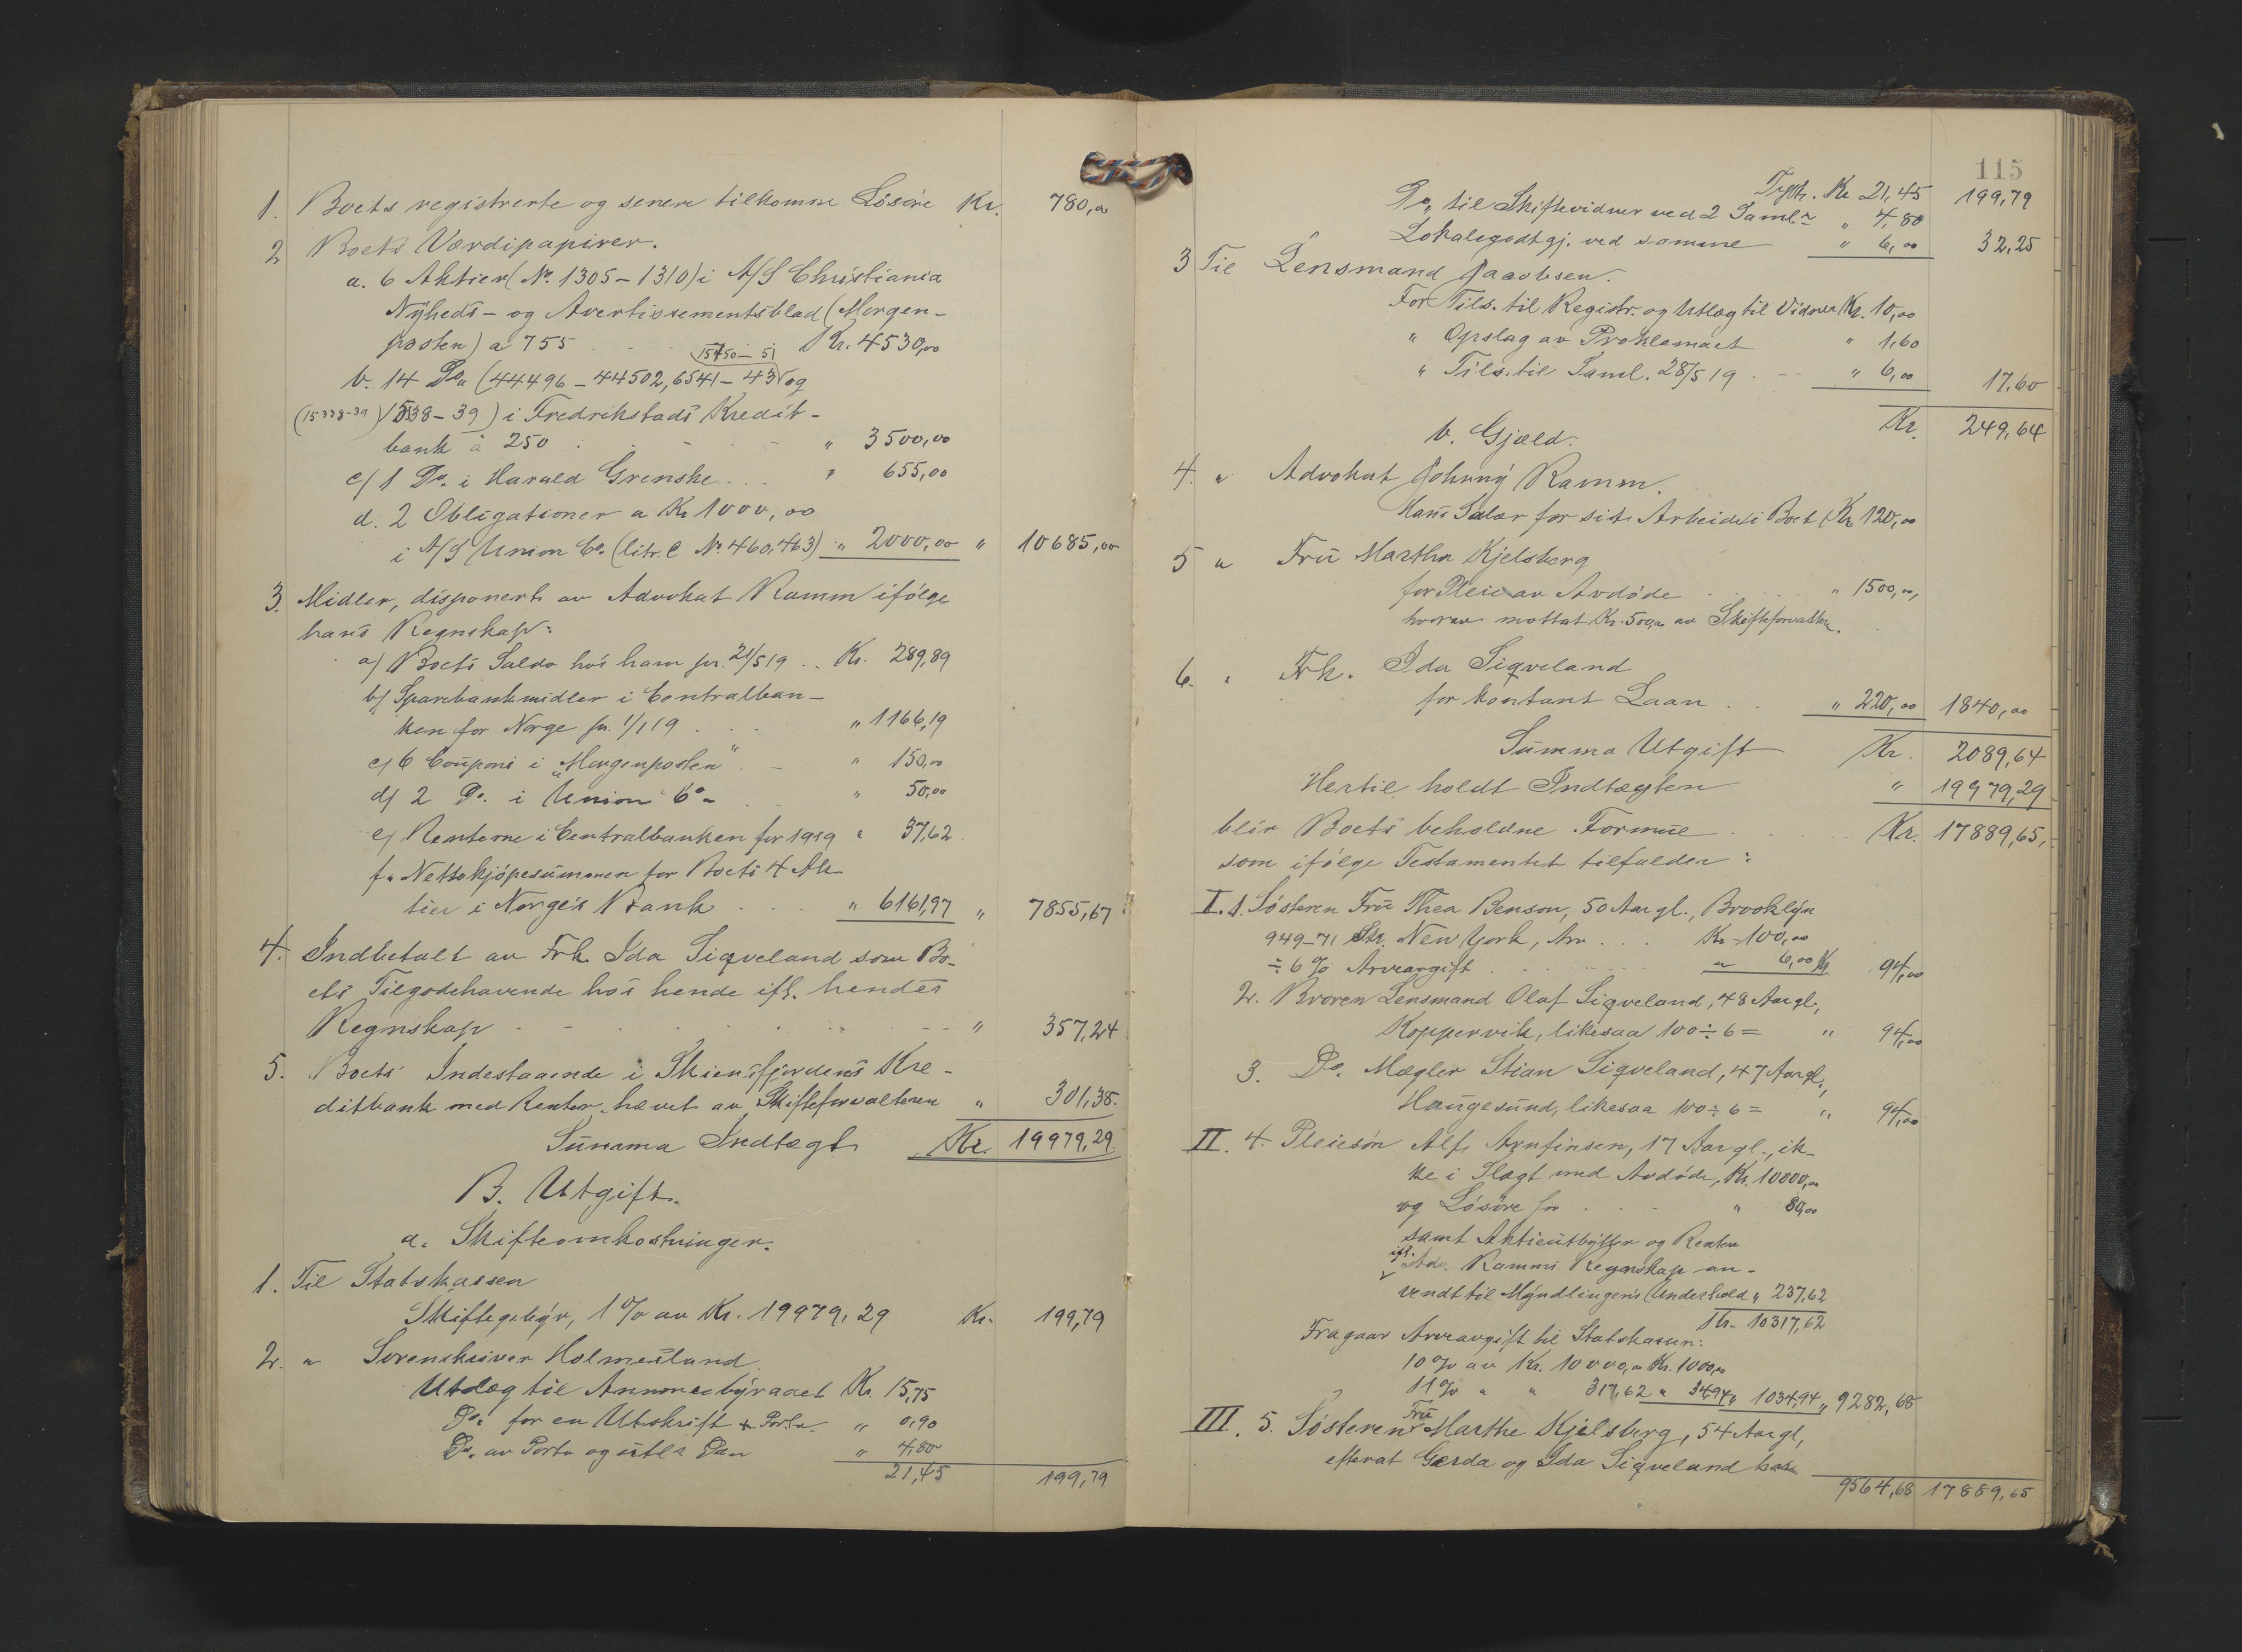 1. Boets registrerte og senere tilkomne Løsøre Kr. 780,00
2 Boets Værdipapirer.
a. 6 Aktier (No. 1305-1310) i A/S Christiania
Nyheds- og Avertissementsblad (Morgen-
posten) a 755 . . . Kr. 4530,00
15450-51
b. 14 Do. (44496-44502, 6541-43 og
(15338-39) 1538-39) i Fredrikstads Kredit-
bank à 250 . - - " 3500,00
c/ 1 Do. i Harald Grenske . . . " 655,00
d. 2 Obligationer a Kr 1000,00
i A/S Union Co. (litr. C No. 460,463) " 2000,00 " 10685,00
3. Midler, disponert av Advokat Ramm ifølge
hans Regnskap:
a/ Boets Saldo hos ham pr. 21/5 19 .. Kr. 289,89
b/ Sparebankmidler i Centralban-
ken for Norge pr. 1/1 19 . . . " 1166,19
c/ 6 Coupons i "Morgenposten" . - " 150,00
d/ 2 Do. i Union Co. . " 50,00
e/ Renterne i Centralbanken for 1919 " 37,62
f. Nettokjøpesummen for Boets 4 Ak-
tier i Norges Bank . . . " 6161,97 " 7855,67
4. Indbetalt av Frk. Ida Siqveland som Bo-
ets Tilgodehavende hos hende ifl. hendes
Regnskap - - . . . . -- " 357,24
5. Boets Indestaaende i Skiensfjordens Kre-
ditbank med Renter hævet av Skifteforvalteren " 301,38.
Summa Indtægt Kr. 19979,29
B. Utgift.
a. Skifteomkostninger.
1. Til Statskassen
Skiftegebyr, 1% av Kr. 19979,29 Kr. 199,79
2. " Sorenskriver Holmesland
Utlæg til Annoncebyraaet Kr. 15,75
Do. for en Utskrift + Porto " 0,90
Do. av Porto og " 4,80
21,45 199,79
115
Trspt. Kr 21,45 199,79
Do. til Skiftevidner ved 2 Saml. " 4,80
Lokalegodtgj. ved samme " 6,00 32,25
3 Til Lensmand Jacobsen.
For Tils. til Registr. og Utlæg til Vidner Kr. 10,00
" Opslag av Proklamaet " 1,60
" Tils. til Saml. 28/5 19 . -- " 6,00 17,60
Kr. 249,64
b. Gjæld.
4. " Advokat Johnny Ramm.
Hans Salær for sit Arbeide i Boet Kr 120,00
5 " Fru Martha Kjelsberg
for Pleie av Avdøde . " 1500,00,
hvorav mottat Kr. 500,00 av Skifteforvalteren.
6. " Frk. Ida Siqveland
for kontant Laan . . " 220,00 1840,00
Summa Utgift Kr. 2089,64
Hertil holdt Indtægten " 19979,29
blir Boets beholdne Formue . . . . Kr. 17889,65,
som ifølge Testamentet tilfalder:
I. 1. Søsteren Fru Thea Benson, 50 Aar gl., Brooklyn
949-71 Str. New York, Arv . . . Kr 100,00
÷ 6% Arveavgift . . . . . . " 6,00 Kr. 94,00
2. Broren Lensmand Olaf Siqveland, 48 Aar gl.,
Koppervik, likesaa 100 ÷ 6 = " 94,00
3. Do. Mægler Stian Siqveland, 47 Aar gl.,
Haugesund, likesaa 100 ÷ 6 = " 94,00
II. 4. Pleiesøn Alf Arnfinsen, 17 Aar gl., ik-
ke i Slægt med Avdøde, Kr. 10000,00
og Løsøre for . - " 80,00
samt Aktieutbytter og Renter
ifl. Adv. Ramms Regnskap an-
vendt til Myndlingens Underhold " 237,62
Kr. 10317,62
Fragaar Arveavgift til Statskassen:
10% av Kr. 10000,00 Kr. 1000,00
11% " " 317,62 " 34,94 " 1034,94 " 9282,68
III. 5. Søsteren Fru Marthe Kjelsberg, 54 Aar gl,
efterat Gerda og Ida Siqveland har
9564,68 17889,65